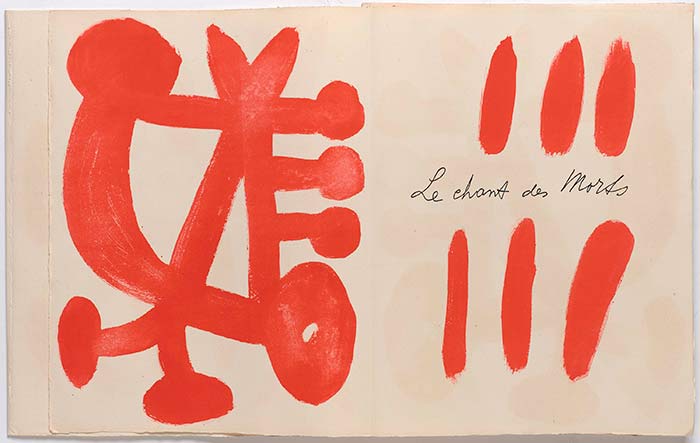 Le chant des Morts